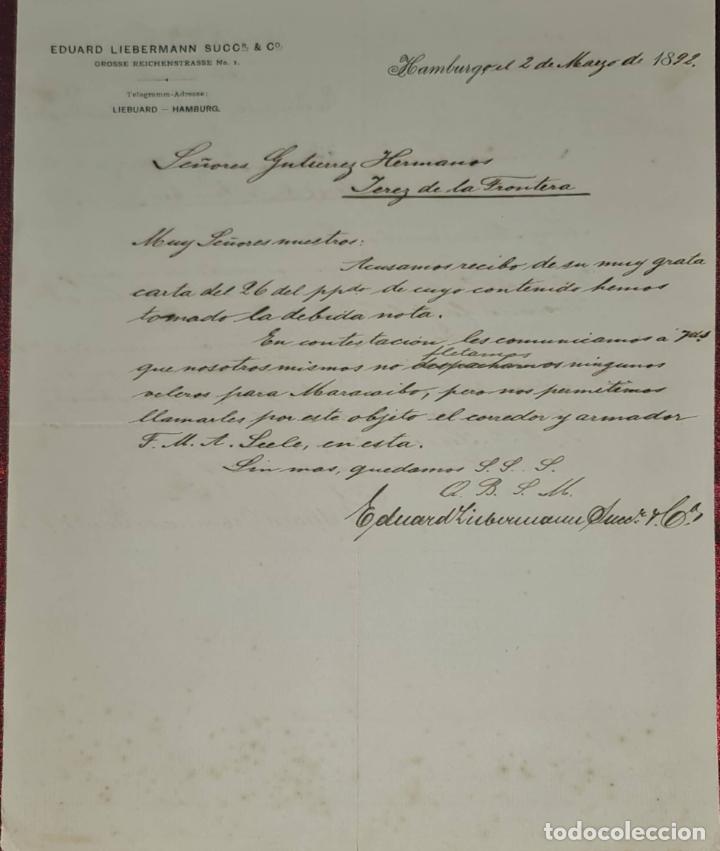 EDUARD LIEBERMANN SUCCR. & CO.
GROSSE REICHENSTRASSE No. 1.
Telegramm-Adresse:
LIEBUARD — HAMBURG.
Hamburgo, el 2 de Marzo de 1892.
Señores Gutierrez Hermanos
Jerez de la Frontera
Muy Señores nuestros:
Acusamos recibo de su muy grata
carta del 26 del ppdo de cuyo contenido hemos
tomado la debida nota.
En contestación les comunicamos a Vds
fletamos
que nosotros mismos no despachamos ningunos
veleros para Maracaibo, pero nos permitimos
llamarles por este objeto el corredor y armador
F. M. A. Seele, en esta.
Sin mas, quedamos S. S. S.
Q. B. S. M.
Eduard Liebermann Succr. & Co.
todocoleccion